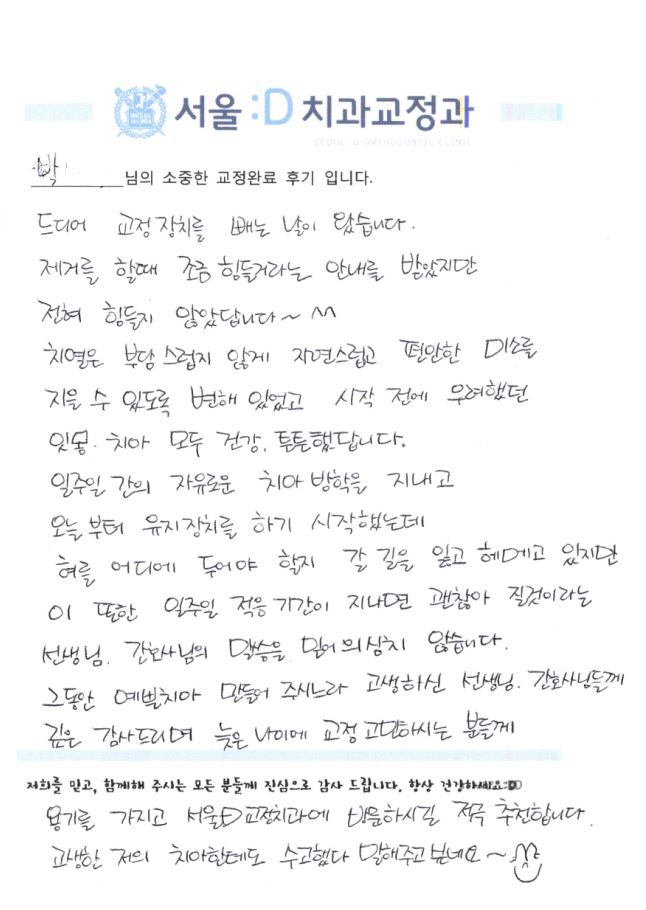 서울 :D 치과교정과
SEOUL :D ORTHODONTIC CLINIC
박 님의 소중한 교정완료 후기 입니다.
드디어 교정장치를 빼는 날이 왔습니다.
제거를 할때 조금 힘들거라는 안내를 받았지만
전혀 힘들지 않았답니다~ ^^
치열은 부담스럽지 않게 자연스럽고 편안한 미소를
지을 수 있도록 변해 있었고 시작 전에 우려했던
잇몸. 치아 모두 건강, 튼튼했답니다.
일주일 간의 자유로운 치아 방학을 지내고
오늘부터 유지장치를 하기 시작했는데
혀를 어디에 두어야 할지 갈 길을 잃고 헤메고 있지만
이 또한 일주일 적응기간이 지나면 괜찮아 질것이라는
선생님. 간호사님의 말씀을 믿어 의심치 않습니다.
그동안 예쁜치아 만들어 주시느라 고생하신 선생님. 간호사님들께
깊은 감사드리며 늦은 나이에 교정 고민하시는 분들께
저희를 믿고, 함께해 주시는 모든 분들께 진심으로 감사 드립니다. 항상 건강하세요:D
용기를 가지고 서울D교정치과에 방문하시길 적극 추천합니다.
고생한 저의 치아한테도 수고했다 말해주고 싶네요~